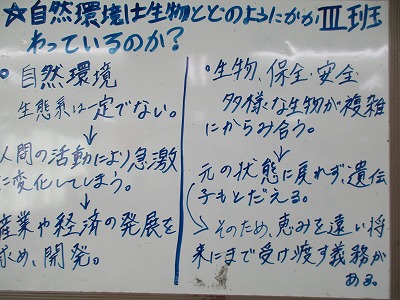 ☆自然環境は生物とどのようにかか Ⅲ班
わっているのか?
○自然環境
生態系は一定でない。
↓
人間の活動により急激
に変化してしまう。
↓
産業や経済の発展を
求め、開発。
○生物、保全・安全
多様な生物が複雑
にからみ合う。
↓
元の状態に戻れず、遺伝
子もとだえる。
そのため、恵みを遠い将
来にまで受け渡す義務が
ある。